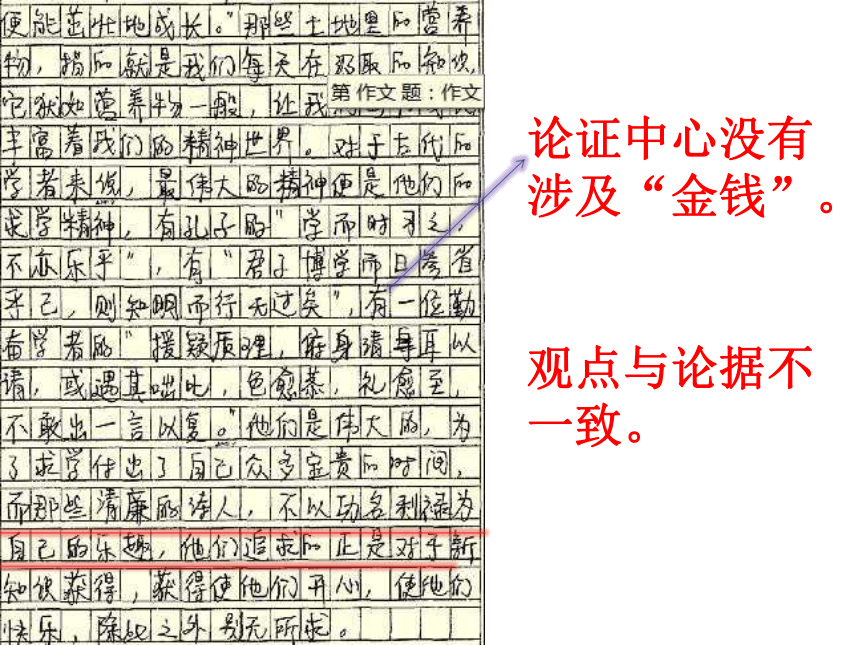 便能茁壮地成长。”那些土地里的营养
物，指的就是我们每天在吸取的知识，
它犹如营养物一般，让我
第 作文 题：作文
丰富着我们的精神世界。对于古代的
学者来说，最伟大的精神便是他们的
求学精神，有孔子的“学而时习之，
不亦乐乎”，有“君子博学而日参省
乎己，则知明而行无过矣”，有一位勤
奋学者的“援疑质理，俯身倾耳以
请，或遇其咄叱，色愈恭，礼愈至，
不敢出一言以复。”他们是伟大的，为
了求学付出了自己众多宝贵的时间，
而那些清廉的诗人，不以功名利禄为
自己的乐趣，他们追求的正是对于新
知识获得，获得使他们开心，使他们
快乐，除此之外别无所求。
论证中心没有
涉及“金钱”。
观点与论据不
一致。